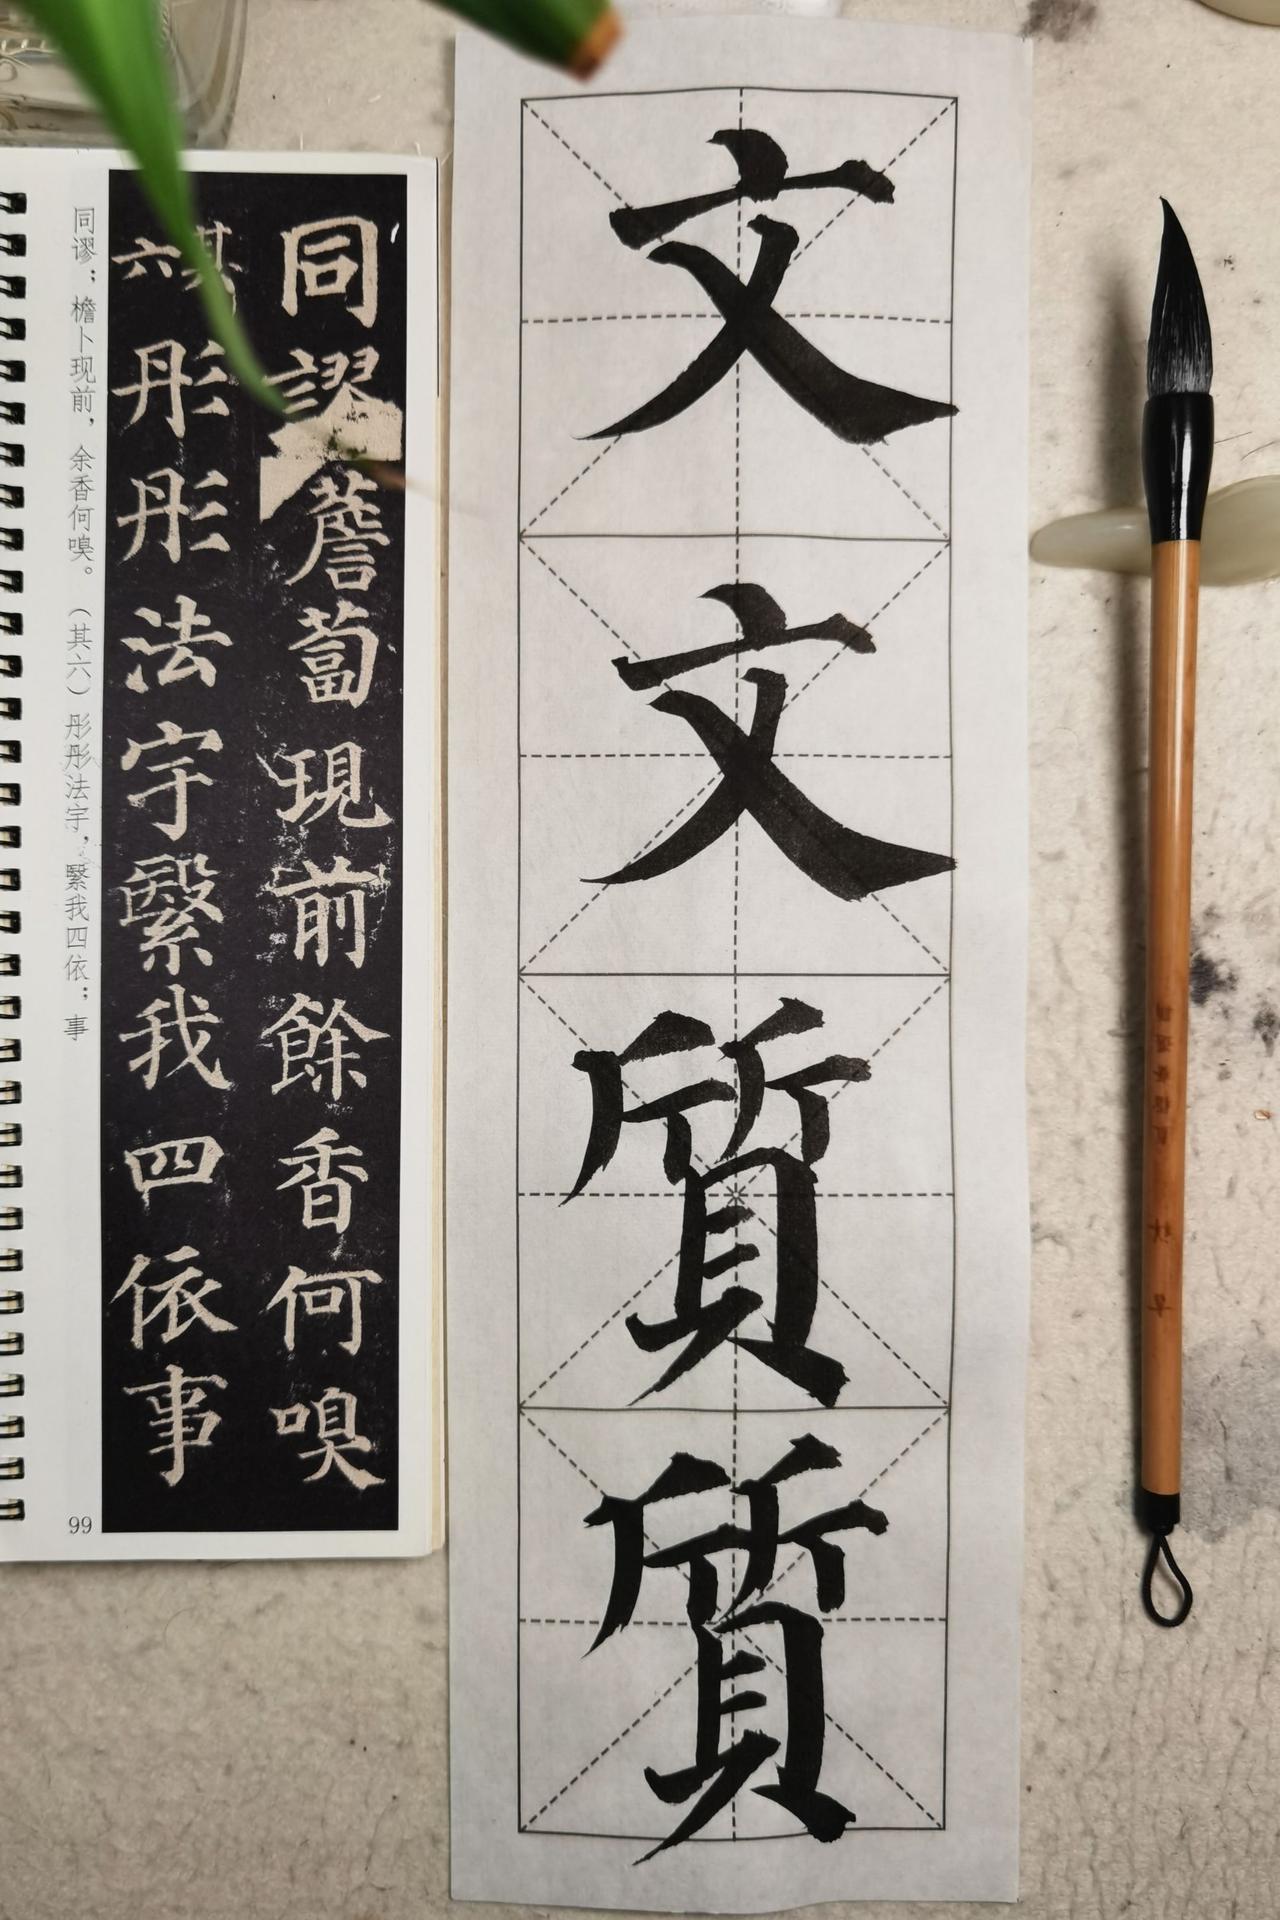 文文質質
同謬薝蔔現前餘香何嗅
其六彤彤法宇繄我四依事
同谬；檐卜现前，余香何嗅。（其六）彤彤法宇，繄我四依；事
99